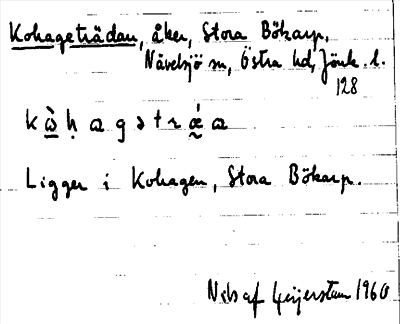 Kohageträdan, åker, Stora Bökarp,
Nävelsjö sn, Östra hd, Jönk. l.
128
k ὼ̱ ḥ a g ə t r ǽ̰ a
Ligger i Kohagen, Stora Bökarp.
Nils af Geijerstam 1960